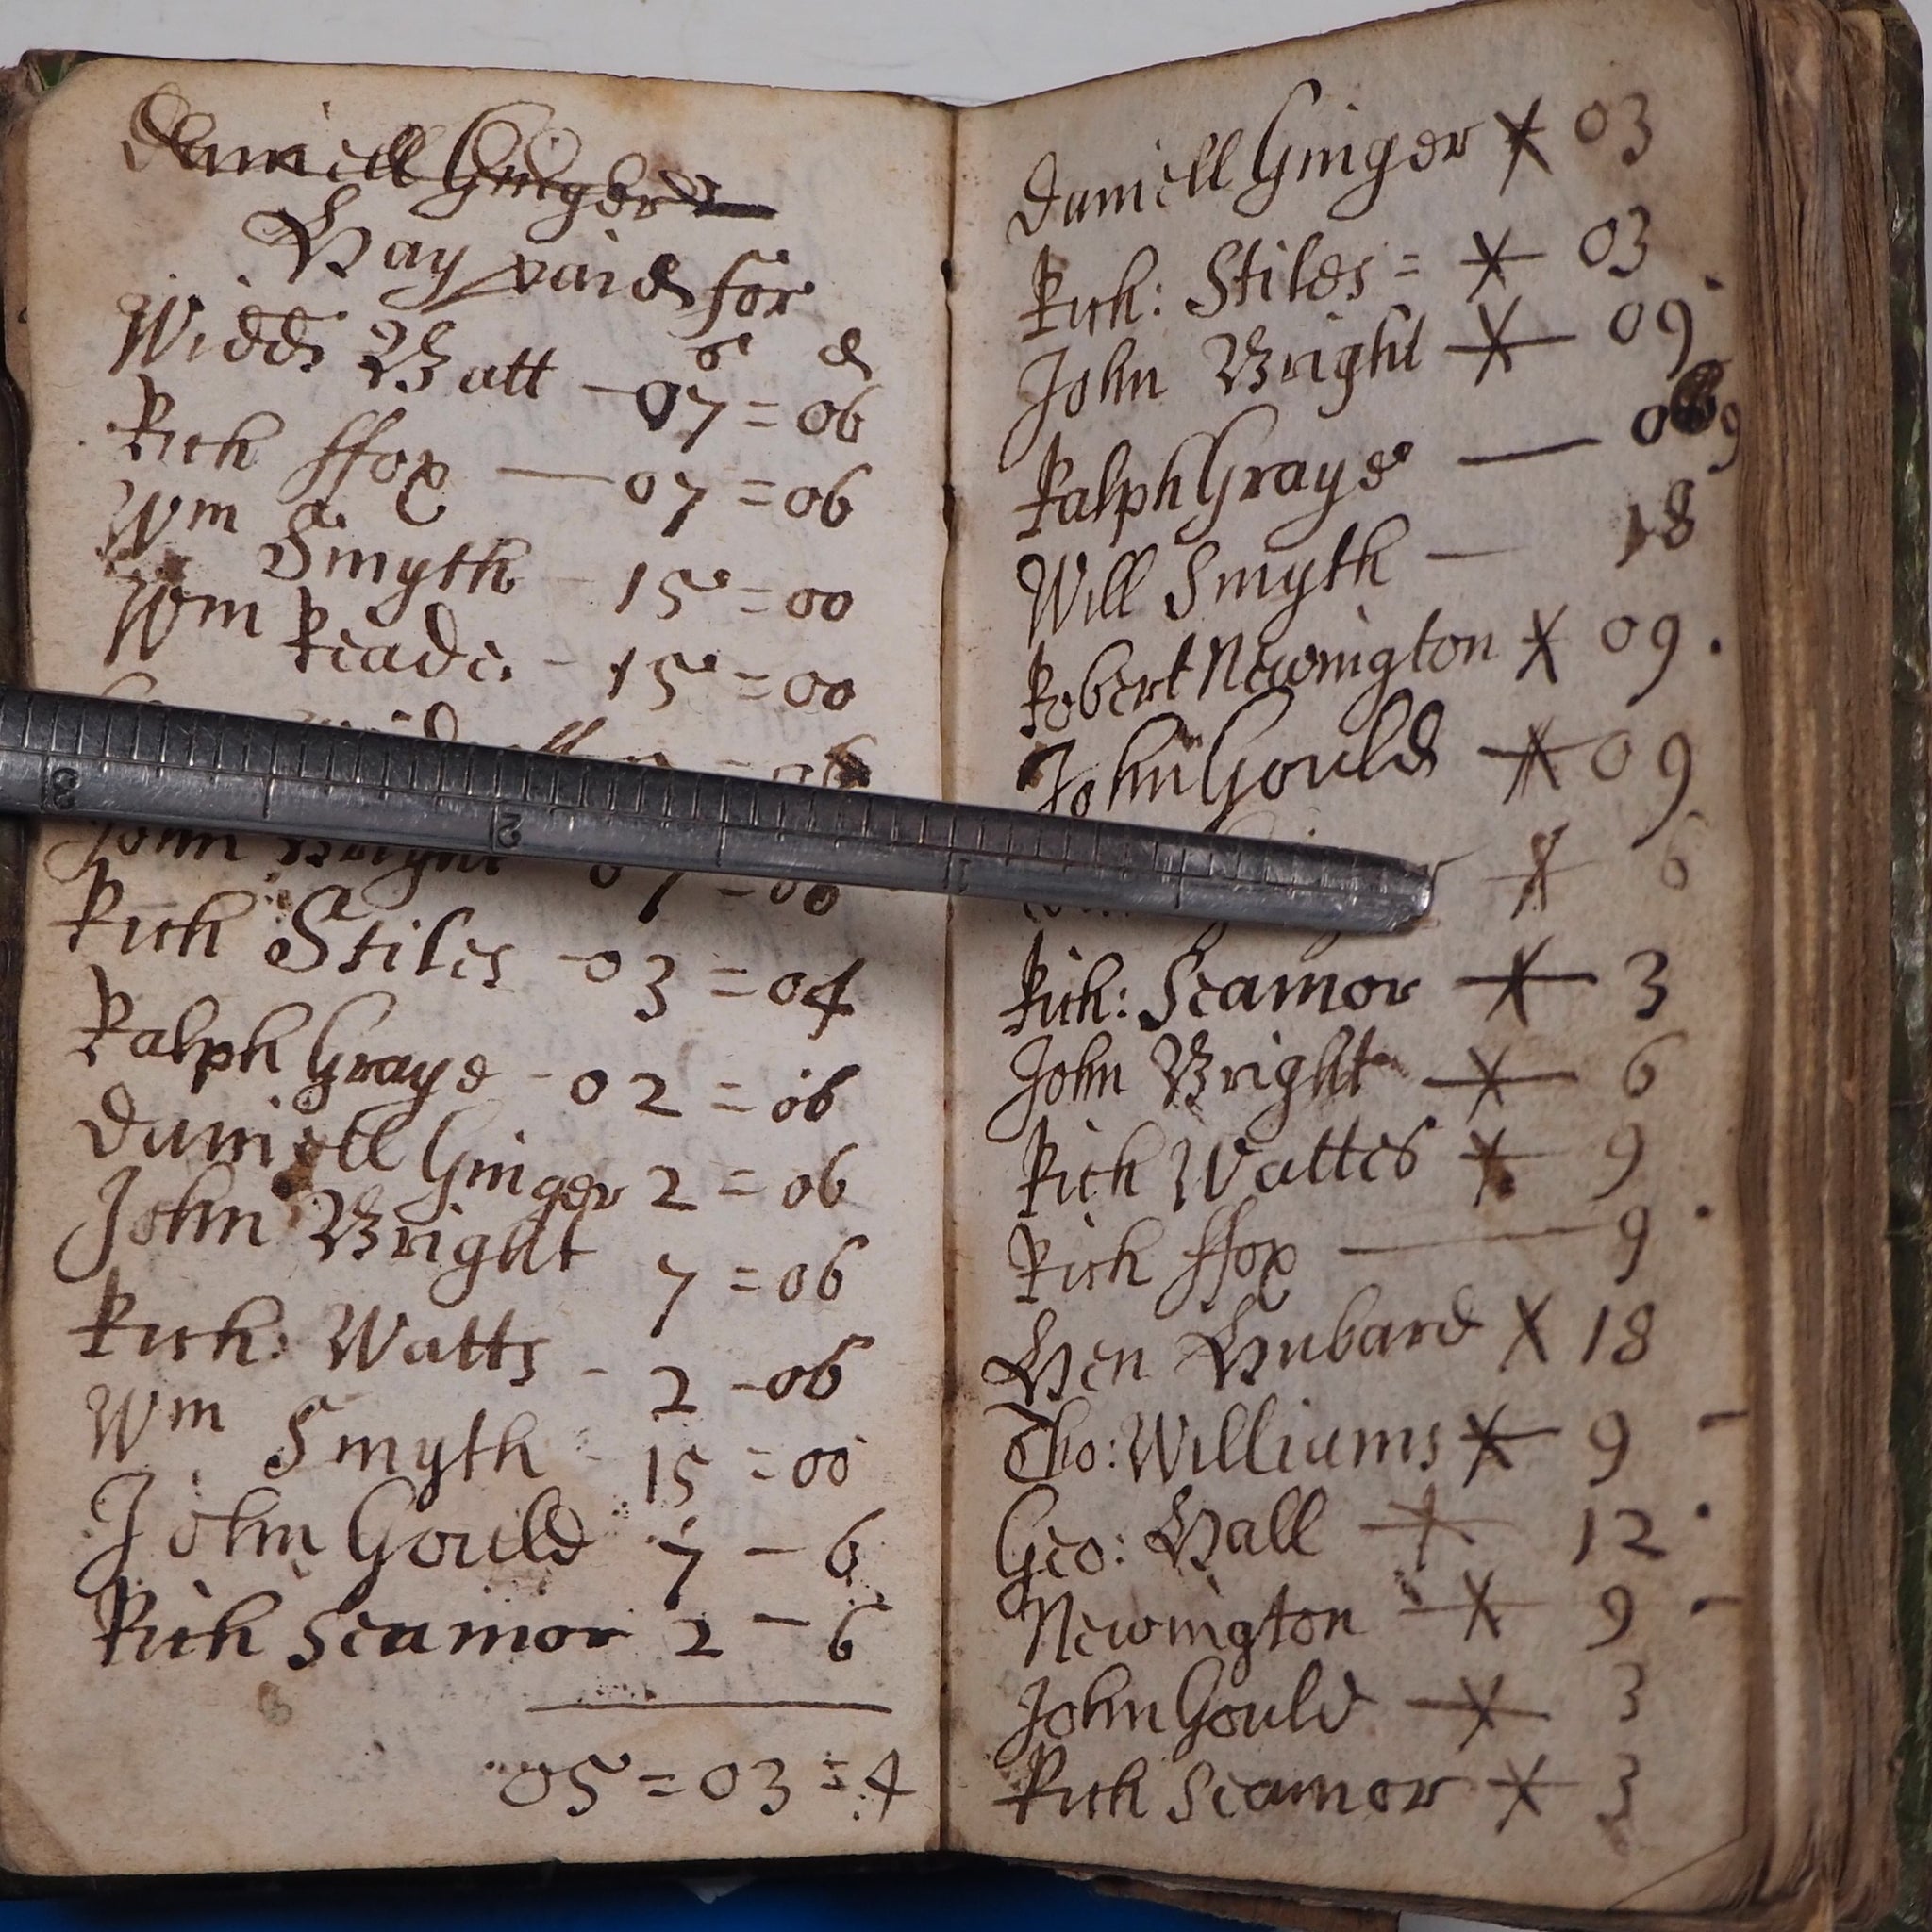 Daniell Ginger
Hay paid for
s d
Widd Batt - 07 = 06
Rich ffox — 07 = 06
Wm Smyth - 15 = 00
Wm Reade - 15 = 00
= 06
John Bright 07 = 06
Rich Stiles - 03 = 04
Ralph Graye - 02 = 06
Daniell Ginger 2 = 06
John Bright 7 = 06
Rich: Watts - 2 - 06
Wm Smyth - 15 = 00
John Gould 7 - 6
Rich Seamor 2 - 6
05 = 03 = 4
Daniell Ginger 03
Rich: Stiles = 03
John Bright 09
Ralph Graye — 09
Will Smyth — 18
Robert Newington 09
John Gould 09
6
Rich: Seamor 3
John Bright 6
Rich Wattes 9
Rich ffox — 9
Hen Hubard 18
Tho: Williams 9
Geo: Hall 12
Newington 9
John Gould 3
Rich Seamor 3
3
2
1